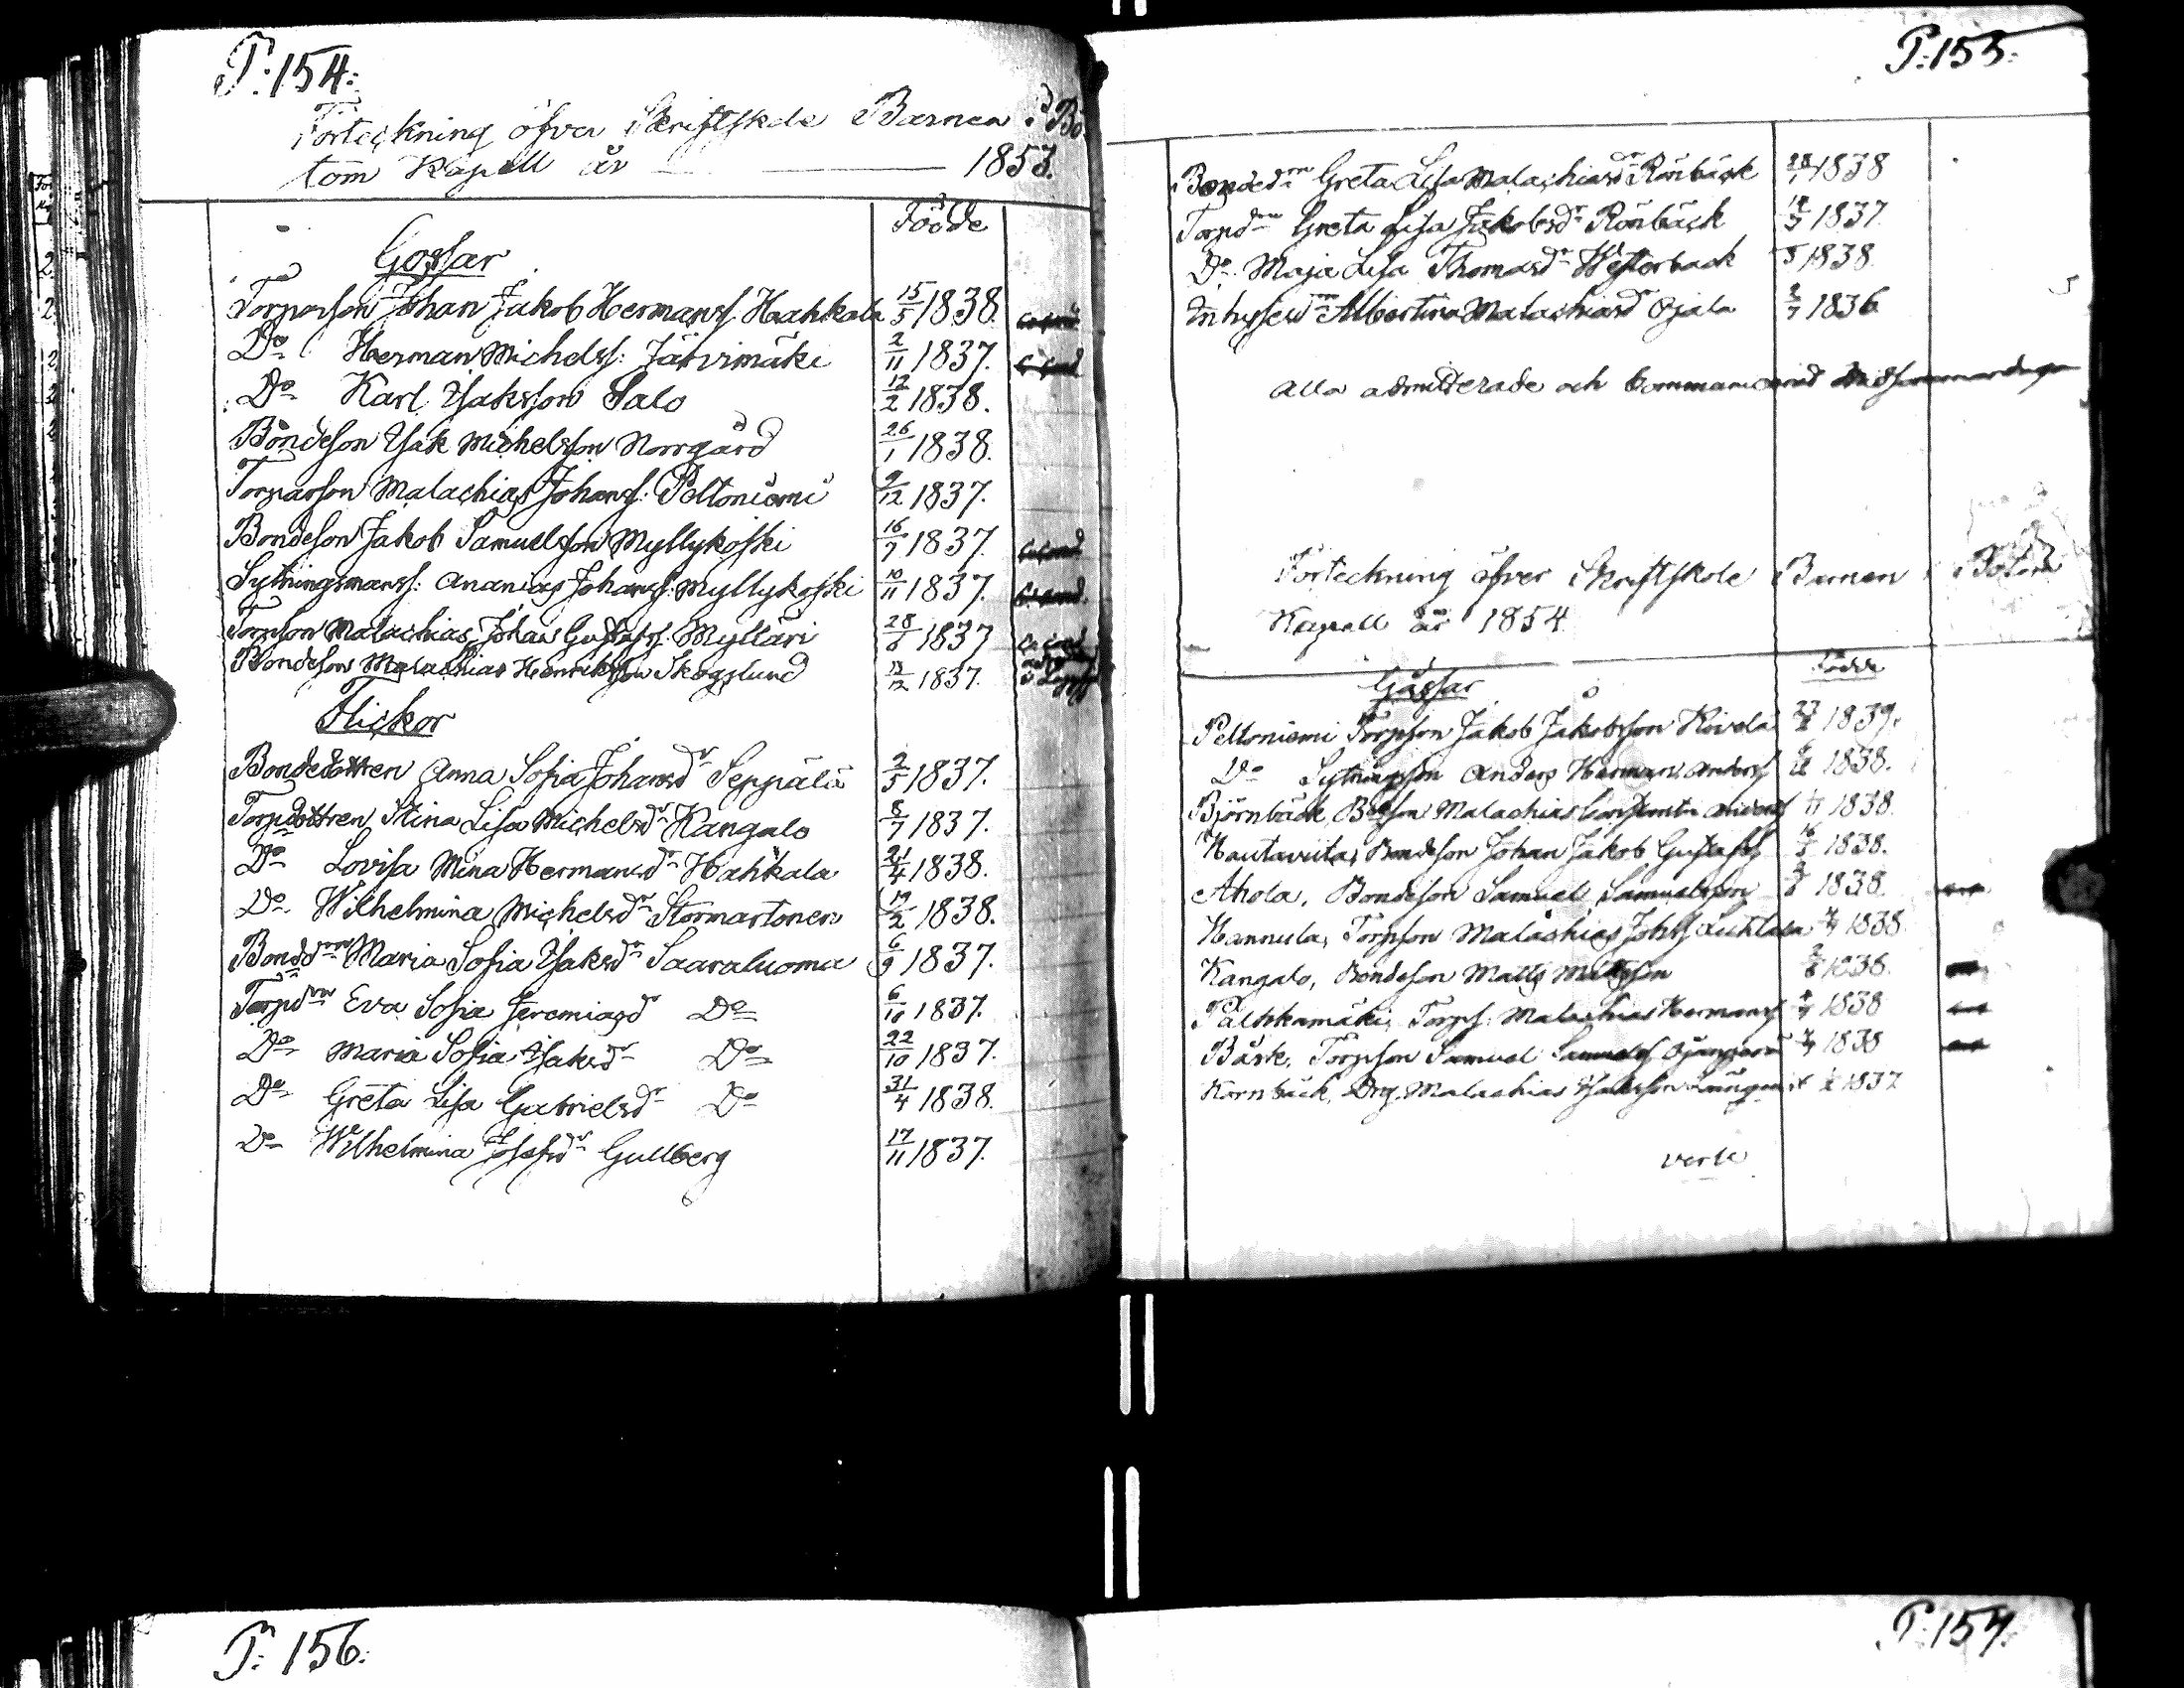 P: 154:
Förteckning öfver Skriftskole Barnen i Bö
tom Kapell år — 1853.
Födde
Gossar
Torparson Johan Jakob Hermanss. Hahkala 15/5 1838.
Do Herman Michelss: Järvimäki 2/11 1837.
Do Karl Isaksson Salo 12/2 1838.
Bondeson Isak Michelsson Norrgård 26/1 1838.
Torparson Malachias Johanss: Peltoniemi 9/12 1837.
Bondeson Jakob Samuelsson Myllykoski 16/7 1837.
Sytningsmanss: Ananias Johanss: Myllykoski 10/11 1837.
Torpson Malachias Johan Gustafss. Mylläri 28/6 1837
Bondeson Malachias Henriksson Skogslund 13/12 1837.
Flickor
Bondedottren Anna Sofia Johansdr Seppälä 2/5 1837.
Torpdottren Stina Lisa Michelsdr Kangalo 8/7 1837.
Do Lovisa Mina Hermansdr Hahkala 21/4 1838.
Do Wilhelmina Michelsdr Stormartonen 19/2 1838.
Bonddrn Maria Sofia Isaksdr Saaraluoma 6/9 1837.
Torpdrn Eva Sofia Jeremiasdr Do 6/10 1837.
Do Maria Sofia Isaksdr Do 22/10 1837.
Do Greta Lisa Gabrielsdr Do 31/4 1838.
Do Wilhelmina Josefsdr Gullberg 17/11 1837.
P: 155:
Bondedrn Greta Lisa Malachiasdr Rönbäck 1838
Torpdrn Greta Lisa Jakobsdr Rönbäck 1837.
Do Maja Lisa Thomasdr Westerback 1838.
Inhysesdrn Albertina Malachiasdr Ojala 1836
Alla admitterade och
Förteckning öfver Skriftskole Barnen i Bötom
Kapell år 1854
Födde
Gossar
Peltoniemi Torpson Jakob Jakobsson Koivela 1839.
Do Sytningsson Anders Herman Anderss 1838.
Björnbäck, Malachias Constantin Anderss 1838.
Hautaviita, Bondeson Johan Jakob Gustafss 1838.
Ahola, Bondeson Samuel Samuelsson 1838.
Hannula, Torpson Malachias Johss Luhtala 1838.
Kangalo, Bondeson Matts Mattsson 1838.
Torps: Malachias Hermanss 1838
Bäsk, Torpson Samuel Samuelss 1838
Malachias Isaksson 1837
verte
P: 156:
P: 157.